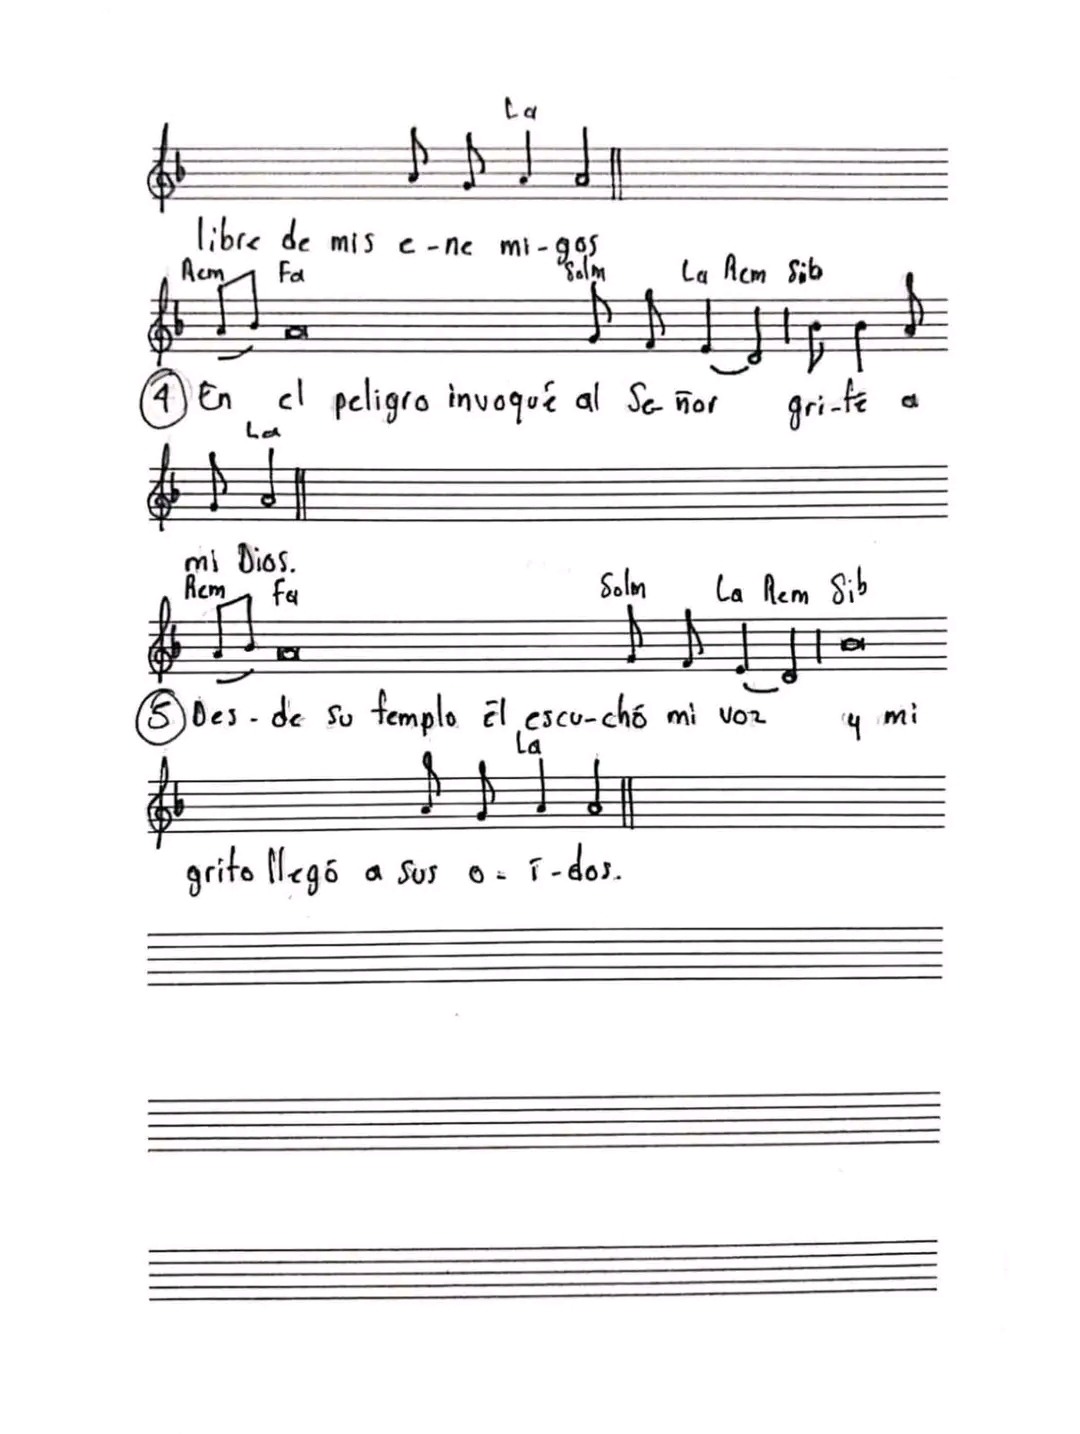 La
libre de mis e-ne mi-gos
Rem Fa Solm La Rem Sib
4 En el peligro invoqué al Se ñor gri-té a
La
mi Dios.
Rem Fa Solm La Rem Sib
5 Des-de su templo Él escu-chó mi voz y mi
La
grito llegó a sus o-í-dos.